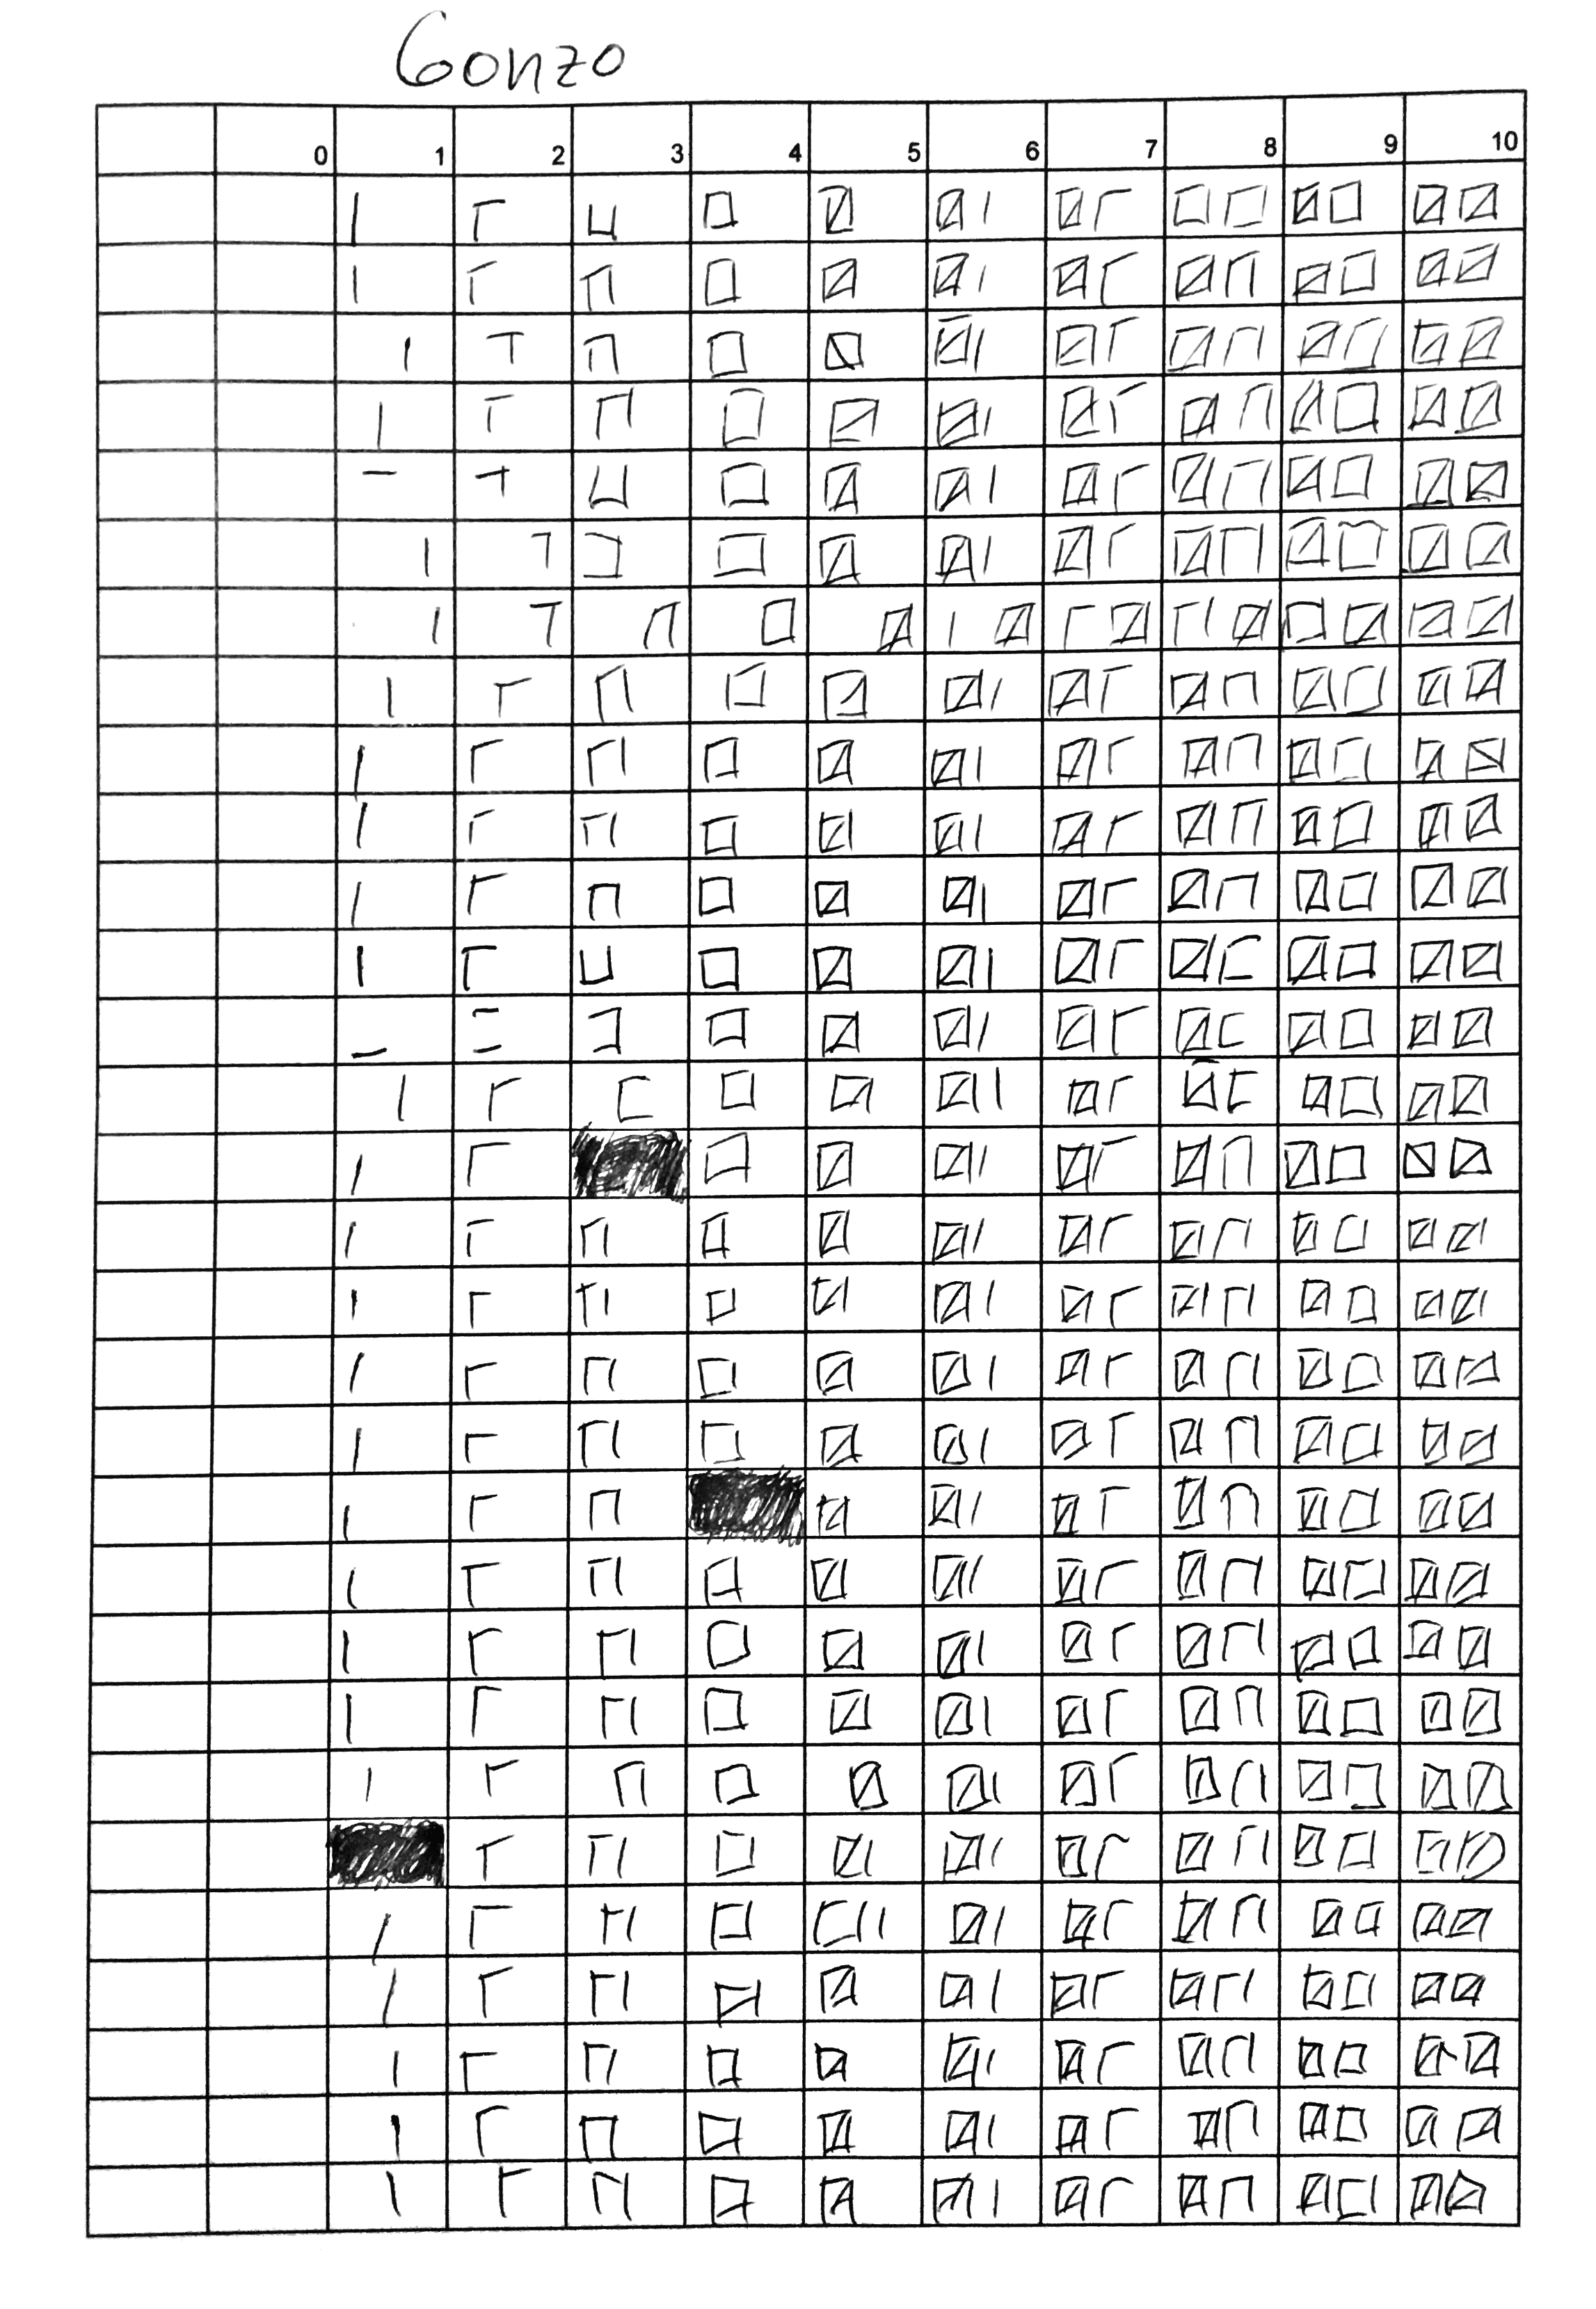 Gonzo
0 1 2 3 4 5 6 7 8 9 10